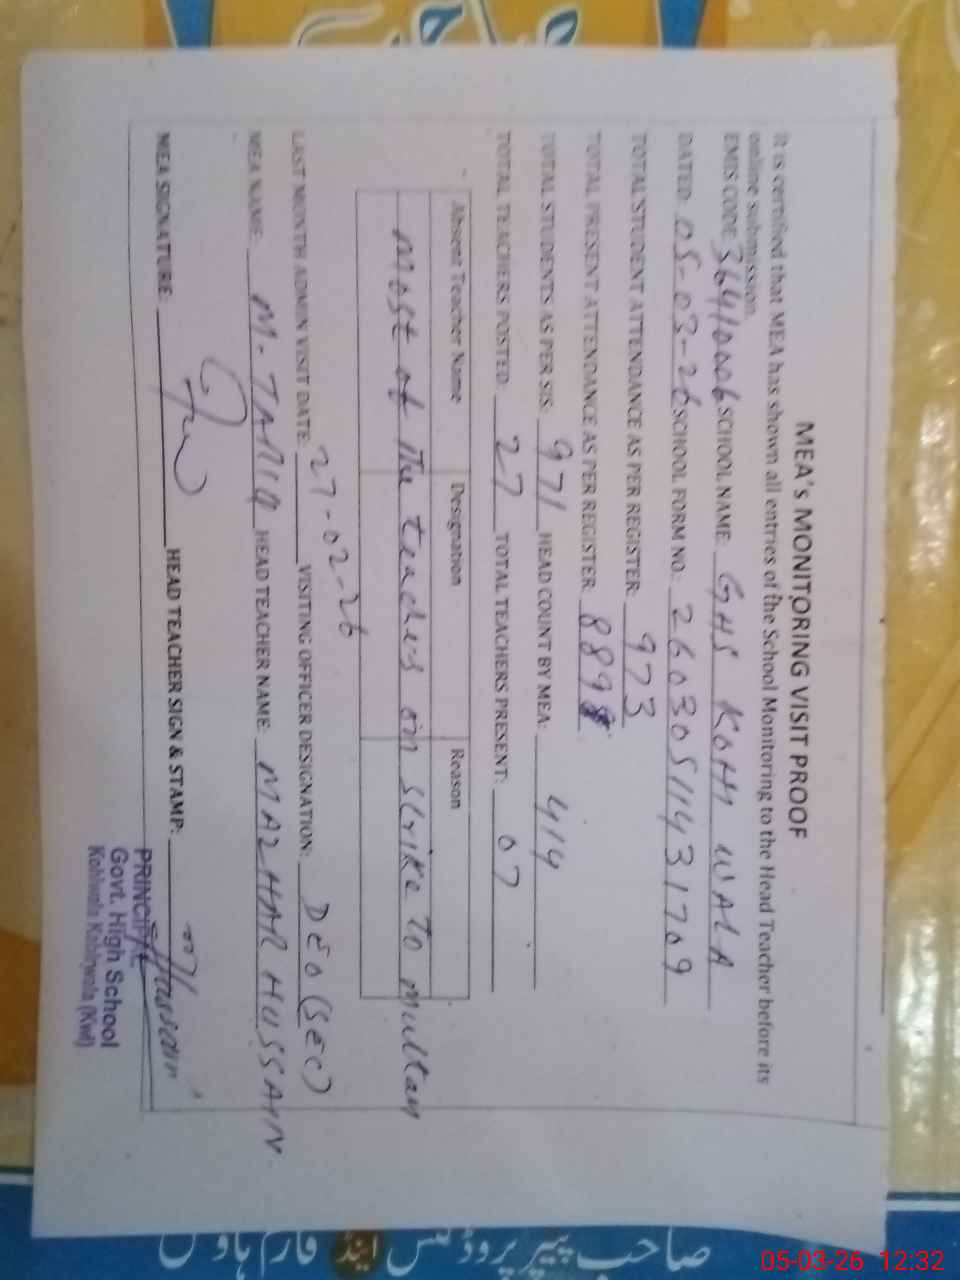 MEA's MONITORING VISIT PROOF
It is certified that MEA has shown all entries of the School Monitoring to the Head Teacher before its
online submission.
EMIS CODE: 36410006 SCHOOL NAME: GHS KOHI WALA
DATED: 05-03-26 SCHOOL FORM NO.: 2603051143 1709
TOTAL STUDENT ATTENDANCE AS PER REGISTER: 973
TOTAL PRESENT ATTENDANCE AS PER REGISTER: 889
TOTAL STUDENTS AS PER SIS: 971 HEAD COUNT BY MEA: 414
TOTAL TEACHERS POSTED: 27 TOTAL TEACHERS PRESENT: 07
Absent Teacher Name Designation Reason
Most of the teachers on strike to multan
LAST MONTH ADMIN VISIT DATE: 27-02-26 VISITING OFFICER DESIGNATION: DEO (SEC)
MEA NAME: M. TARIQ HEAD TEACHER NAME: MAZHAR HUSSAIN
MEA SIGNATURE: HEAD TEACHER SIGN & STAMP:
PRINCIPAL
Govt. High School
Kohiwala Kabirwala (Kwl)
صاحب پیپر پروڈکٹس اینڈ
05-03-26 12:32